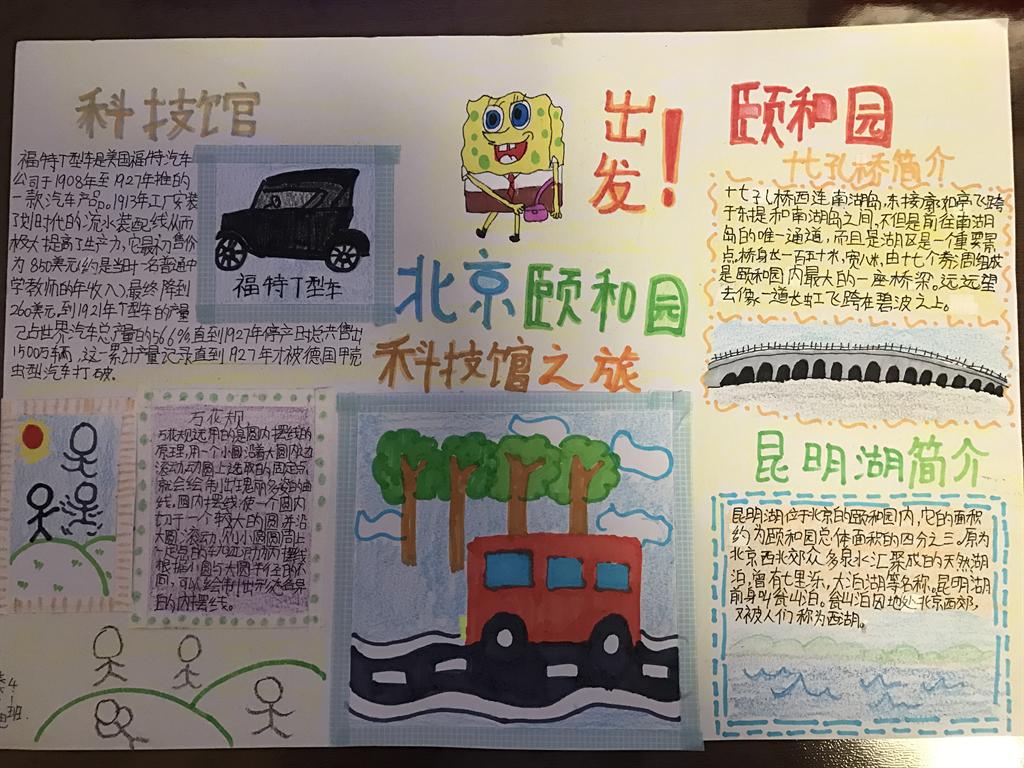 科技馆
福特T型车是美国福特汽车
公司于1908年至1927年推的
一款汽车产品。1913年工厂安装
了划时代的流水装配线从而
极大提高了生产力,它最初售价
为850美元(约是当时一名普通中
学教师的年收入)最终降到
260美元,到1921年T型车的产量
已占世界汽车总产量的56.6%直到1927年停产日总共售出
1500万辆,这一累计产量记录直到1927年才被德国甲壳
虫型汽车打破。
福特T型车
出
发!
北京颐和园
科技馆之旅
颐和园
十七孔桥简介
十七孔桥西连南湖岛,东接廓如亭飞跨
于东堤和南湖岛之间,不但是前往南湖
岛的唯一通道,而且是湖区是一个重要景
点。桥身长一百五十米,宽八米,由十七个券洞组成
是颐和园内最大的一座桥梁。远远望
去像一道长虹飞跨在碧波之上。
万花规
万花规选用的是圆内摆线的
原理,用一个小圆沿着大圆内边
滚动,动圆上选取的固定点
就会绘制出美丽多姿的曲
线。圆内摆线使一个圆内
切于一个较大的圆并沿
大圆滚动,则小圆圆周上
一定点的轨迹动为内摆线
根据小圆与大圆半径的不
同,可以绘制出形状各异
的内摆线。
昆明湖简介
昆明湖位于北京的颐和园内,它的面积
约为颐和园总体面积的四分之三。原为
北京西北郊众多泉水汇聚成的天然湖
泊,曾有七里泺、大泊湖等名称。昆明湖
前身叫瓮山泊。瓮山泊因地处北京西郊,
又被人们称为西湖。
4
1
班